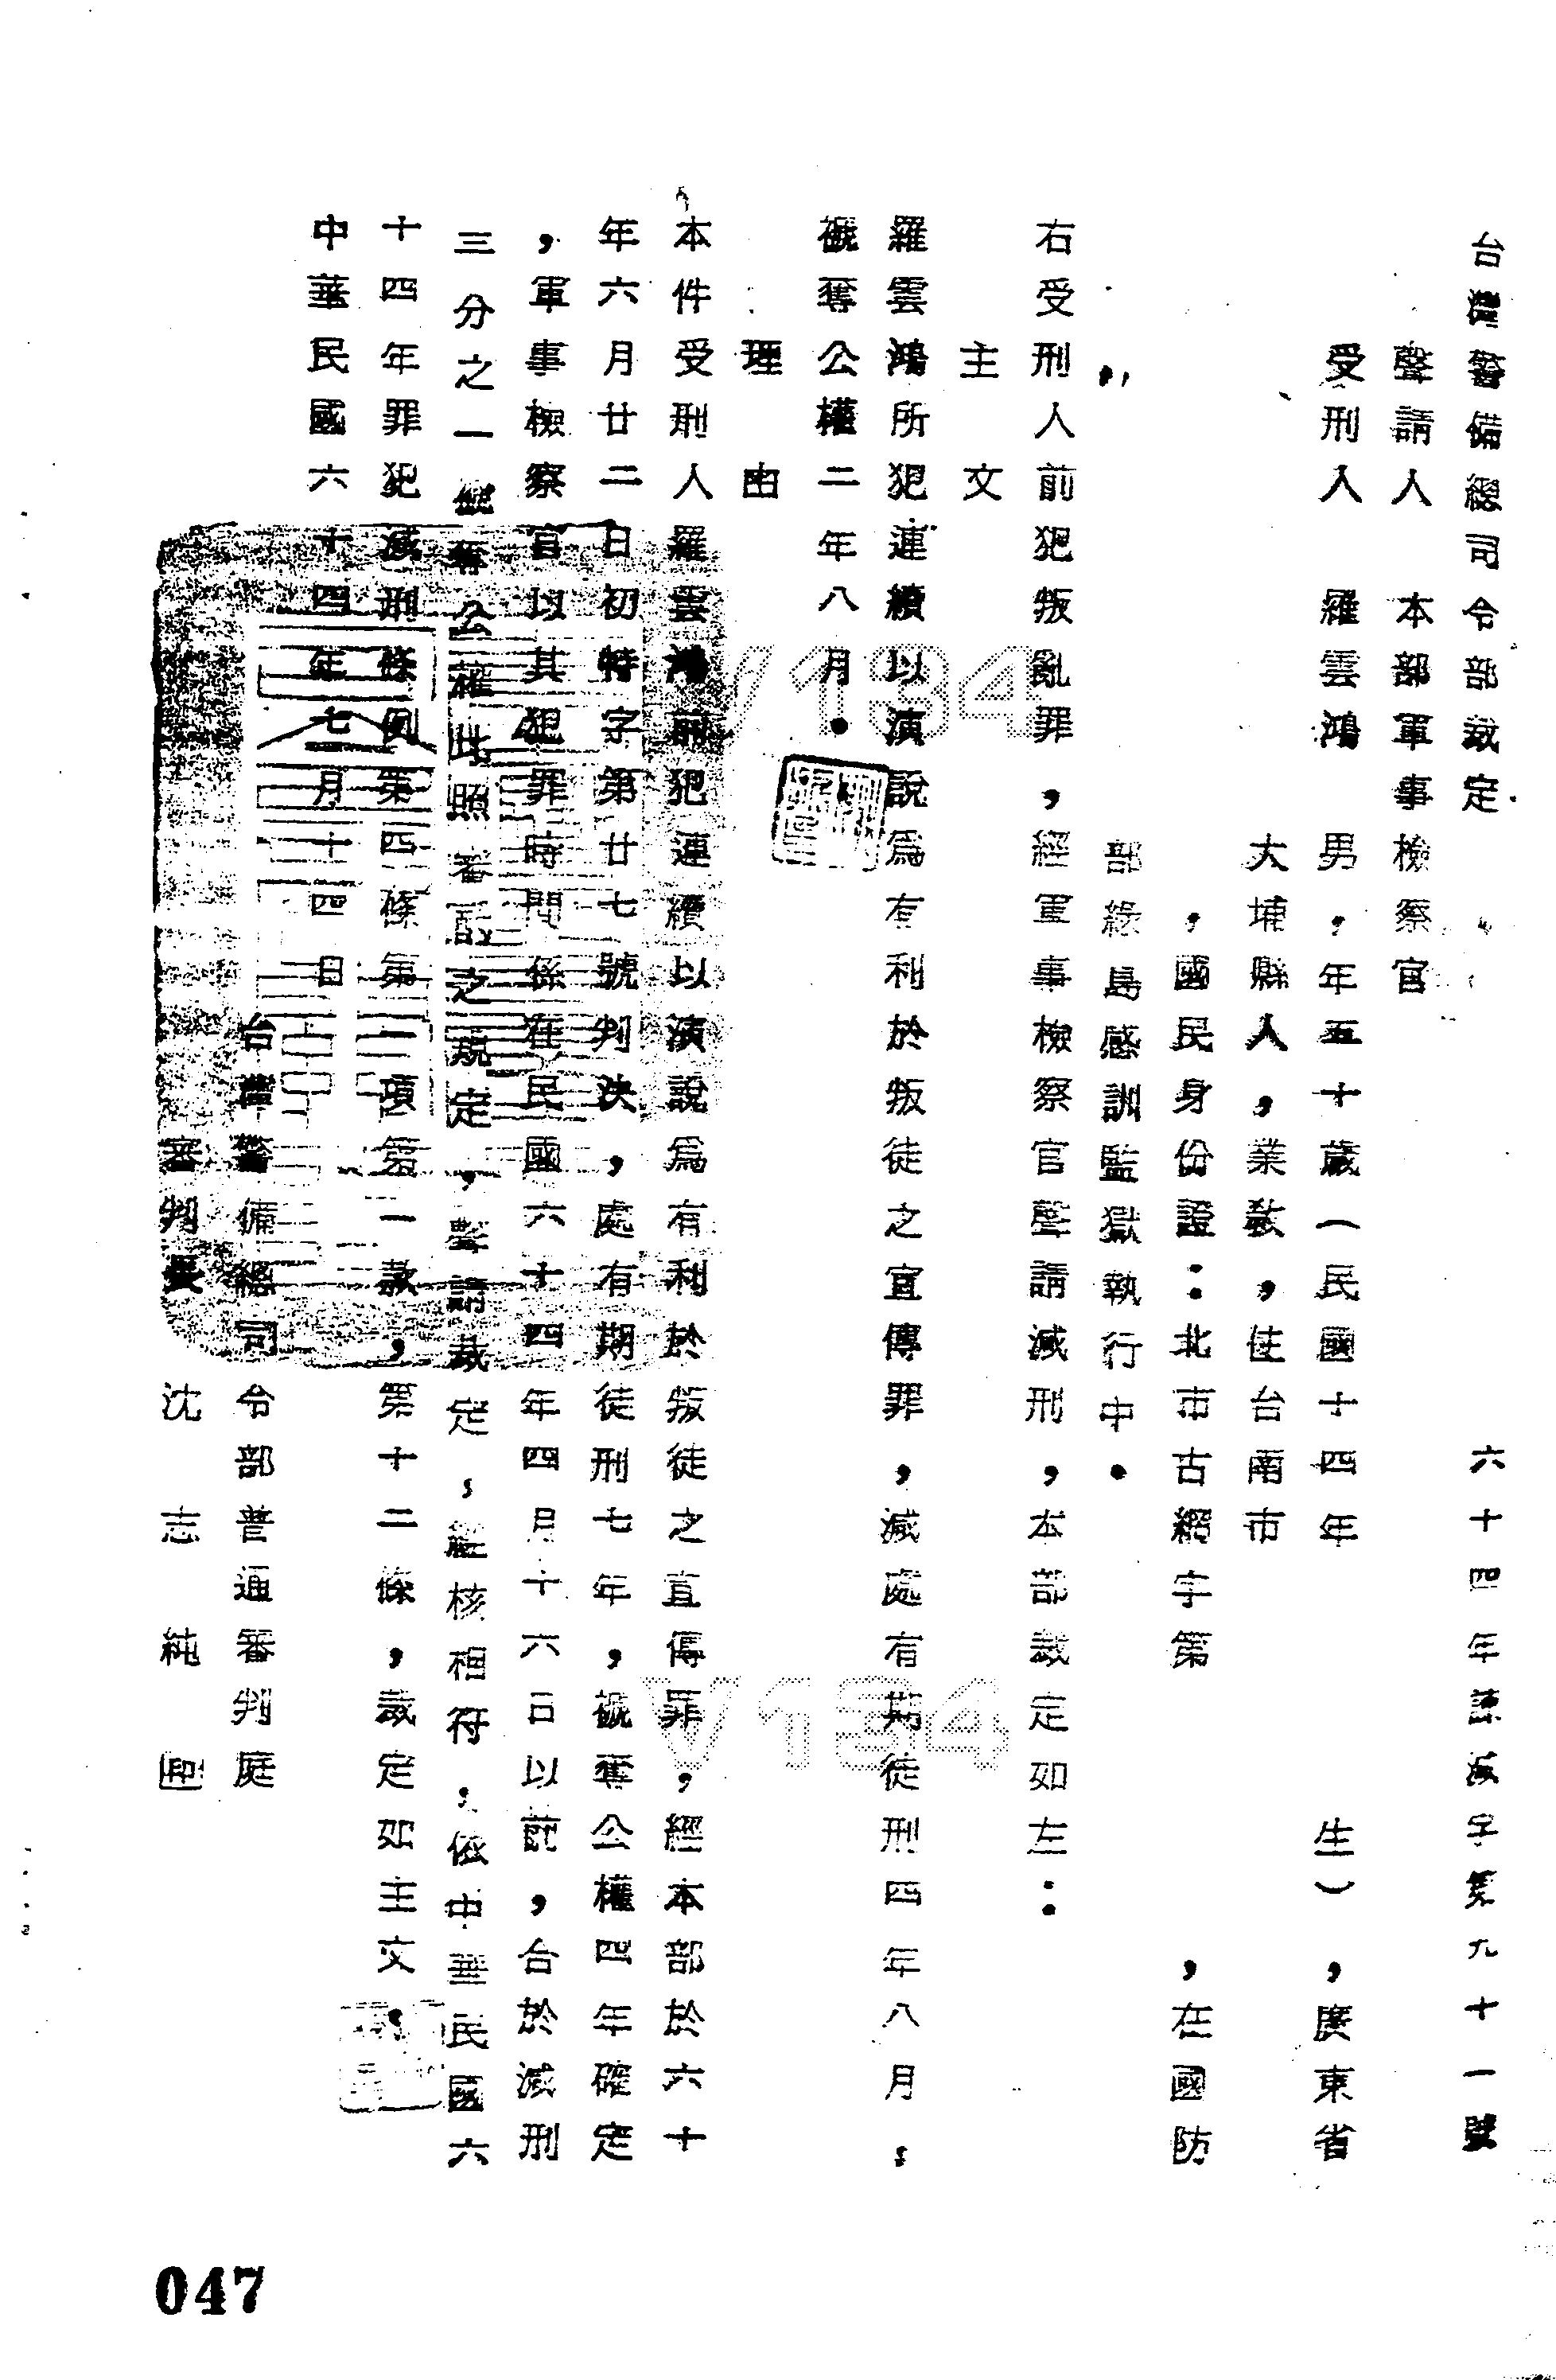 台灣警備總司令部裁定 六十四年諫減字第九十一號
聲請人 本部軍事檢察官
受刑人 羅雲鴻 男,年五十歲(民國十四年 生),廣東省
大埔縣人,業教,住台南市
,國民身份證:北市古 字第 ,在國防
部綠島感訓監獄執行中。
右受刑人前犯叛亂罪,經軍事檢察官聲請減刑,本部裁定如左:
主文
羅雲鴻所犯連續以演說為有利於叛徒之宣傳罪,減處有期徒刑四年八月,
褫奪公權二年八月。
理由
本件受刑人羅雲鴻前犯連續以演說為有利於叛徒之宣傳罪,經本部於六十
年六月廿二日初特字第廿七號判決,處有期徒刑七年,褫奪公權四年確定
,軍事檢察官以其犯罪時間係在民國六十四年四月十六日以前,合於減刑
三分之一褫奪公權此照 之規定,聲請裁定,經核相符,依中華民國六
十四年罪犯減刑條例第四條第一項第一款,第十二條,裁定如主文。
中華民國六十四年七月十四日
台灣警備總司令部普通審判庭
審判長 沈志純 印
V134
V134
047